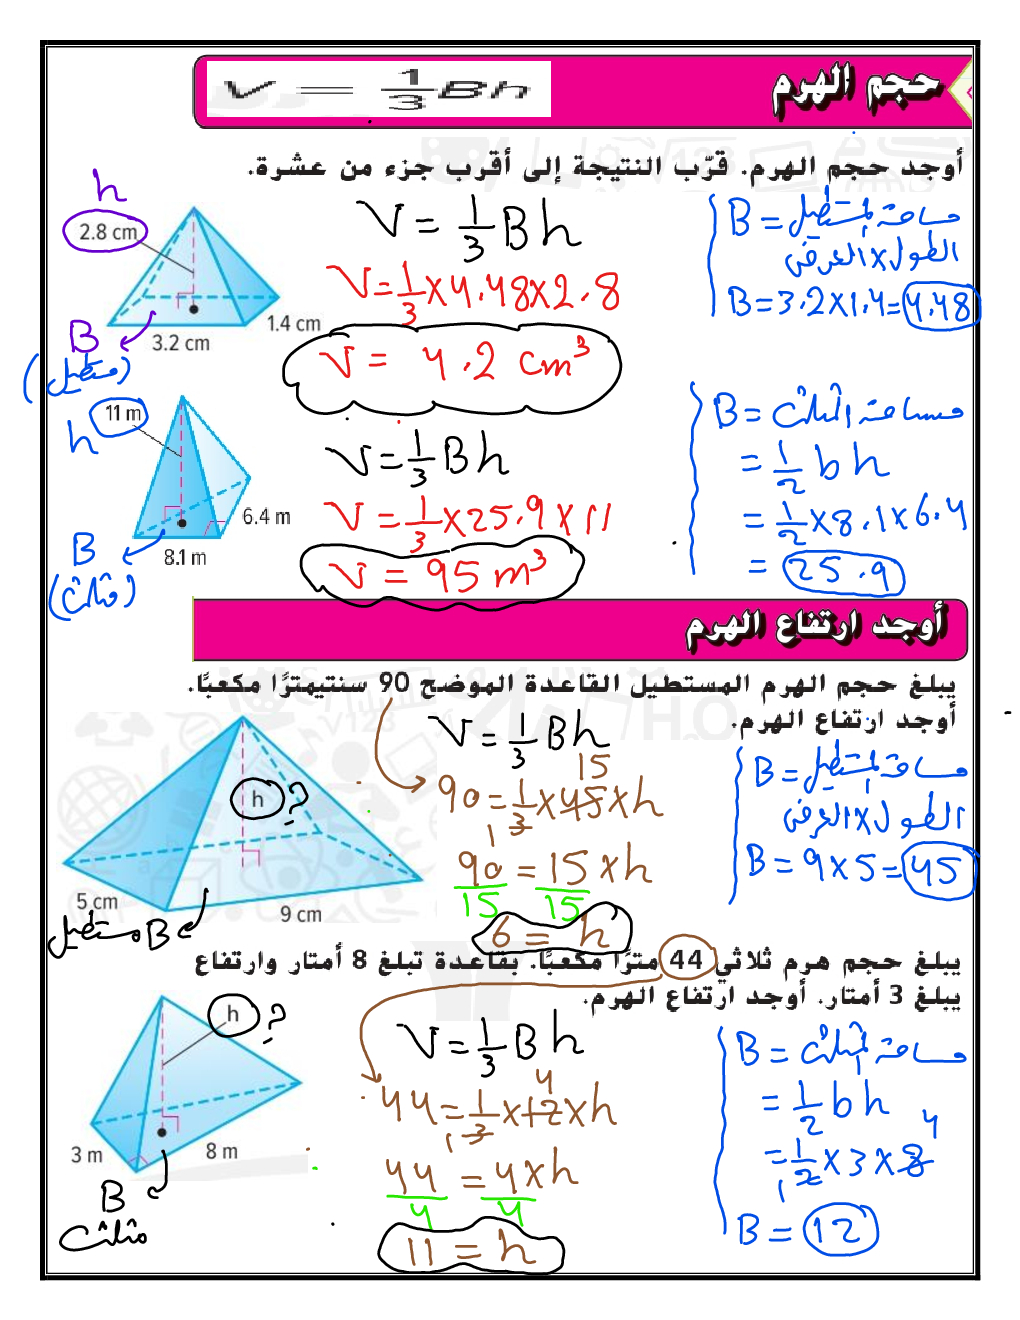 حجم الهرم
V = 1/3 Bh
أوجد حجم الهرم. قرّب النتيجة إلى أقرب جزء من عشرة.
h
2.8 cm
1.4 cm
3.2 cm
B
(مستطيل)
V = 1/3 B h
V = 1/3 × 4.48 × 2.8
V = 4.2 cm³
B = مساحة المستطيل
الطول × العرض
B = 3.2 × 1.4 = 4.48
11 m
h
6.4 m
8.1 m
B
(مثلث)
V = 1/3 B h
V = 1/3 × 25.9 × 11
V = 95 m³
B = مساحة المثلث
= 1/2 b h
= 1/2 × 8.1 × 6.4
= 25.9
أوجد ارتفاع الهرم
يبلغ حجم الهرم المستطيل القاعدة الموضح 90 سنتيمترًا مكعبًا.
أوجد ارتفاع الهرم.
h ?
5 cm
9 cm
B مستطيل
V = 1/3 B h
15
90 = 1/3 × 45 × h
1
90 = 15 × h
15 15
6 = h
B = مساحة المستطيل
الطول × العرض
B = 9 × 5 = 45
يبلغ حجم هرم ثلاثي 44 مترًا مكعبًا. بقاعدة تبلغ 8 أمتار وارتفاع
يبلغ 3 أمتار. أوجد ارتفاع الهرم.
h ?
3 m
8 m
B
مثلث
V = 1/3 B h
4
44 = 1/3 × 12 × h
1
44 = 4 × h
4 4
11 = h
B = مساحة المثلث
= 1/2 b h
4
= 1/2 × 3 × 8
1
B = 12